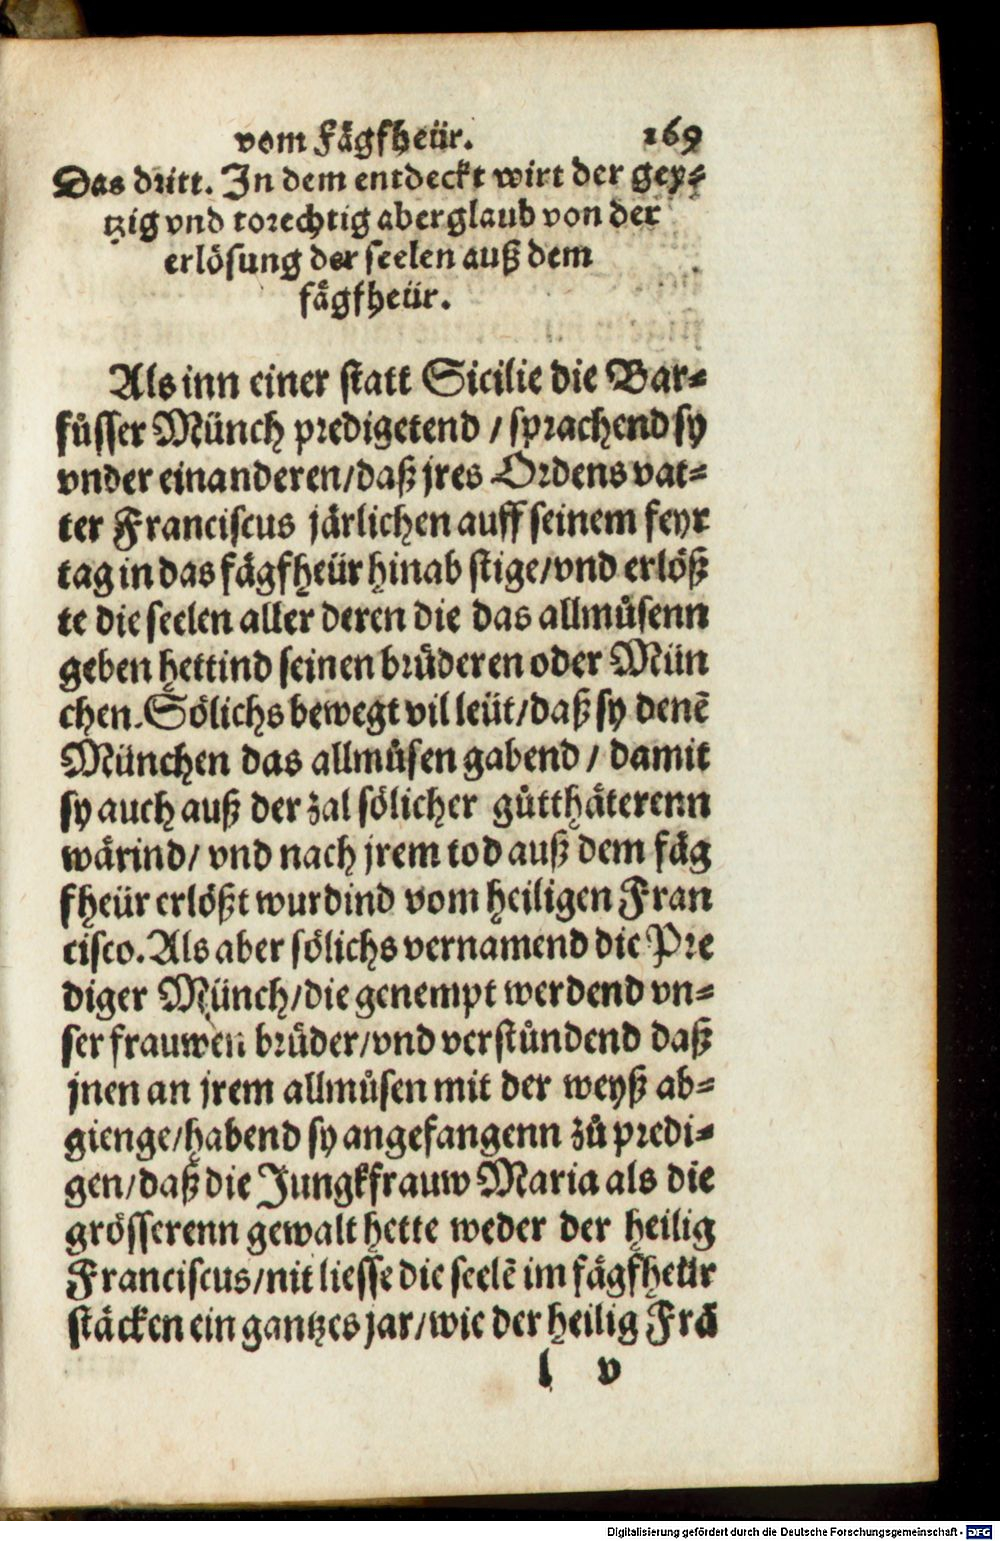 vom Fågfheür. 169
Das dritt. In dem entdeckt wirt der gey⸗
tzig vnd torechtig aberglaub von der
erlösung der seelen auß dem
fågfheür.
Als inn einer statt Sicilie die Bar⸗
fůsser Münch predigetend / sprachend sy
vnder einanderen/daß jres Ordens vat⸗
ter Franciscus jårlichen auff seinem feyr
tag in das fågfheür hinab stige/vnd erlöß
te die seelen aller deren die das allmůsenn
geben hettind seinen brůderen oder Mün
chen. Sölichs bewegt vil leüt/daß sy denē
München das allmůsen gabend / damit
sy auch auß der zal sölicher gůtthåterenn
wårind/ vnd nach jrem tod auß dem fåg
fheür erlößt wurdind vom heiligen Fran
cisco. Als aber sölichs vernamend die Pre
diger Münch/die genempt werdend vn⸗
ser frauwen brůder/vnd verstůndend daß
jnen an jrem allmůsen mit der weyß ab⸗
gienge/habend sy angefangenn zů predi⸗
gen/daß die Jungkfrauw Maria als die
grösserenn gewalt hette weder der heilig
Franciscus/nit liesse die seelē im fågfheür
ståcken ein gantzes jar/wie der heilig Frā
l v
Digitalisierung gefördert durch die Deutsche Forschungsgemeinschaft - DFG